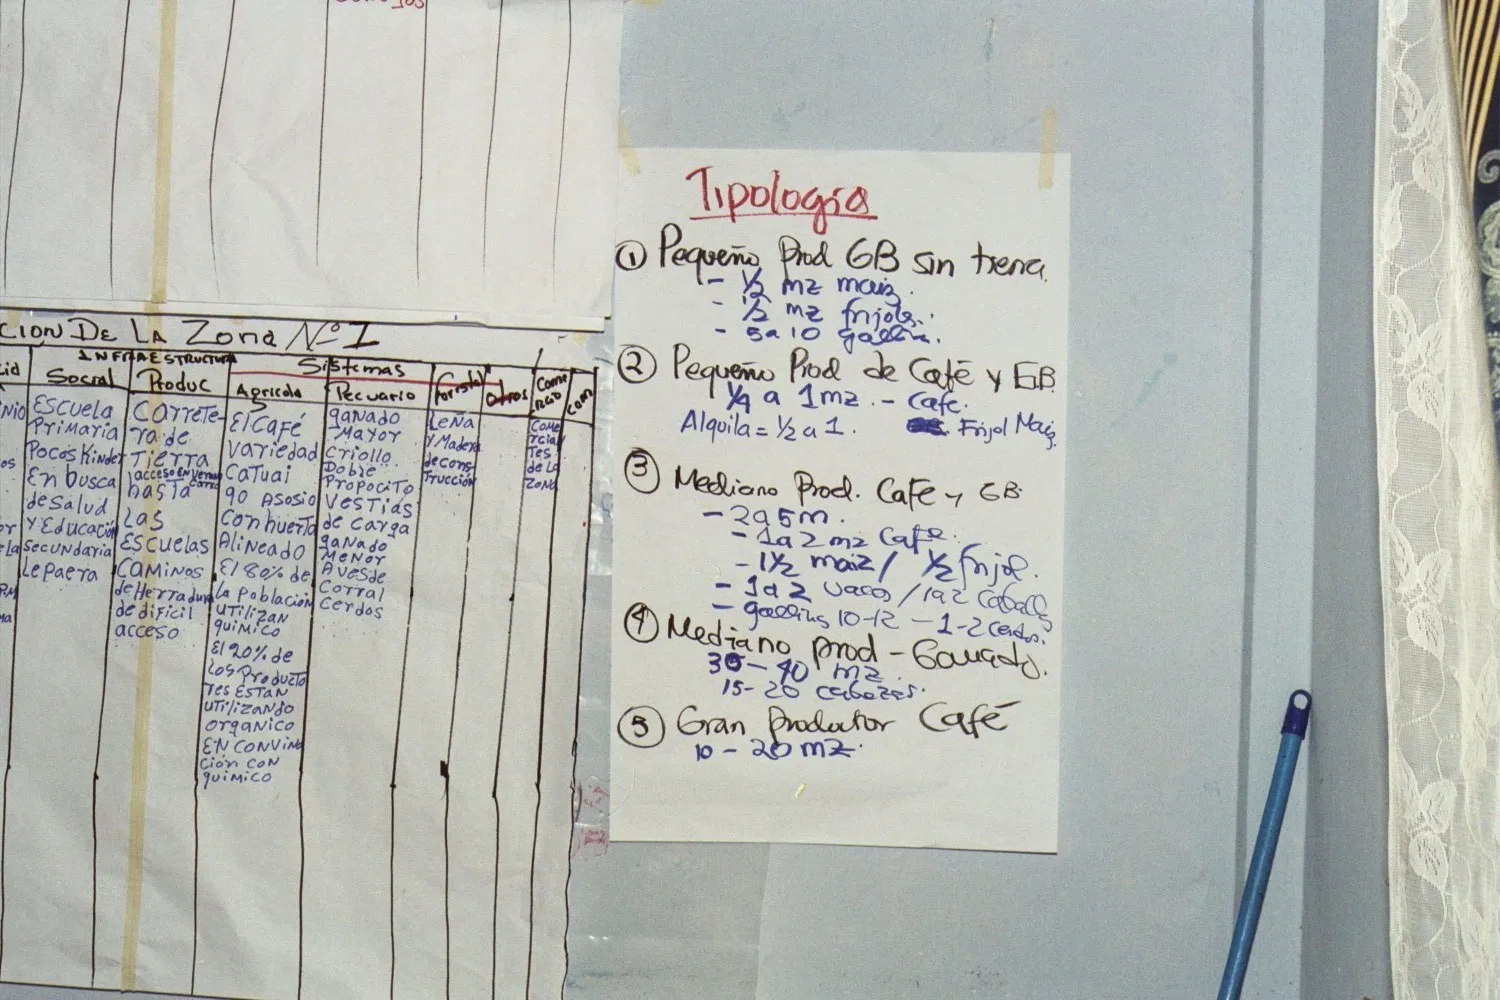 CION DE LA Zona Nº 1
INFRAESTRUCTURA
Sistemas
Social
Produc
Agricola
Pecuario
Forestal
otros
Com
ESCUELA
PRIMARIA
POCOS Kinder
En busca
de Salud
Y Educación
Secundaria
Lepaera
Carrete-
ra de
Tierra
hasta
Las
ESCUELAS
CAMINOS
de Herradura
de dificil
acceso
El Café
variedad
Catuai
90 ASOSIO
Con huerto
Alineado
El 80% de
La Población
UTILIZAN
químico
El 20% de
Los Producto
res ESTAN
UTILIZANDO
organico
EN CONVINA
ción con
químico
ganado
Mayor
criollo
Doble
Propocito
Vestias
de carga
ganado
Menor
Aves de
corral
cerdos
Leña
y Madera
de cons
trucción
Come
rcian
Tes
de La
Zona
Tipología
① Pequeño Prod GB sin tierra.
- ½ mz maiz.
- ½ mz frijoles.
- 5 a 10 gallin.
② Pequeño Prod de Café y GB
¼ a 1 mz. - Cafe.
Alquila = ½ a 1. Frijol Maiz.
③ Mediano Prod. Cafe y GB
- 2 a 5 m.
- 1 a 2 mz Cafe.
- 1½ maiz / ½ frijol.
- 1 a 2 vacas / 1 a 2 caballs
- gallinas 10-12 - 1-2 cerdos.
④ Mediano prod - Ganado.
30 - 40 mz
15 - 20 cabezas.
⑤ Gran Productor Café
10 - 20 mz.